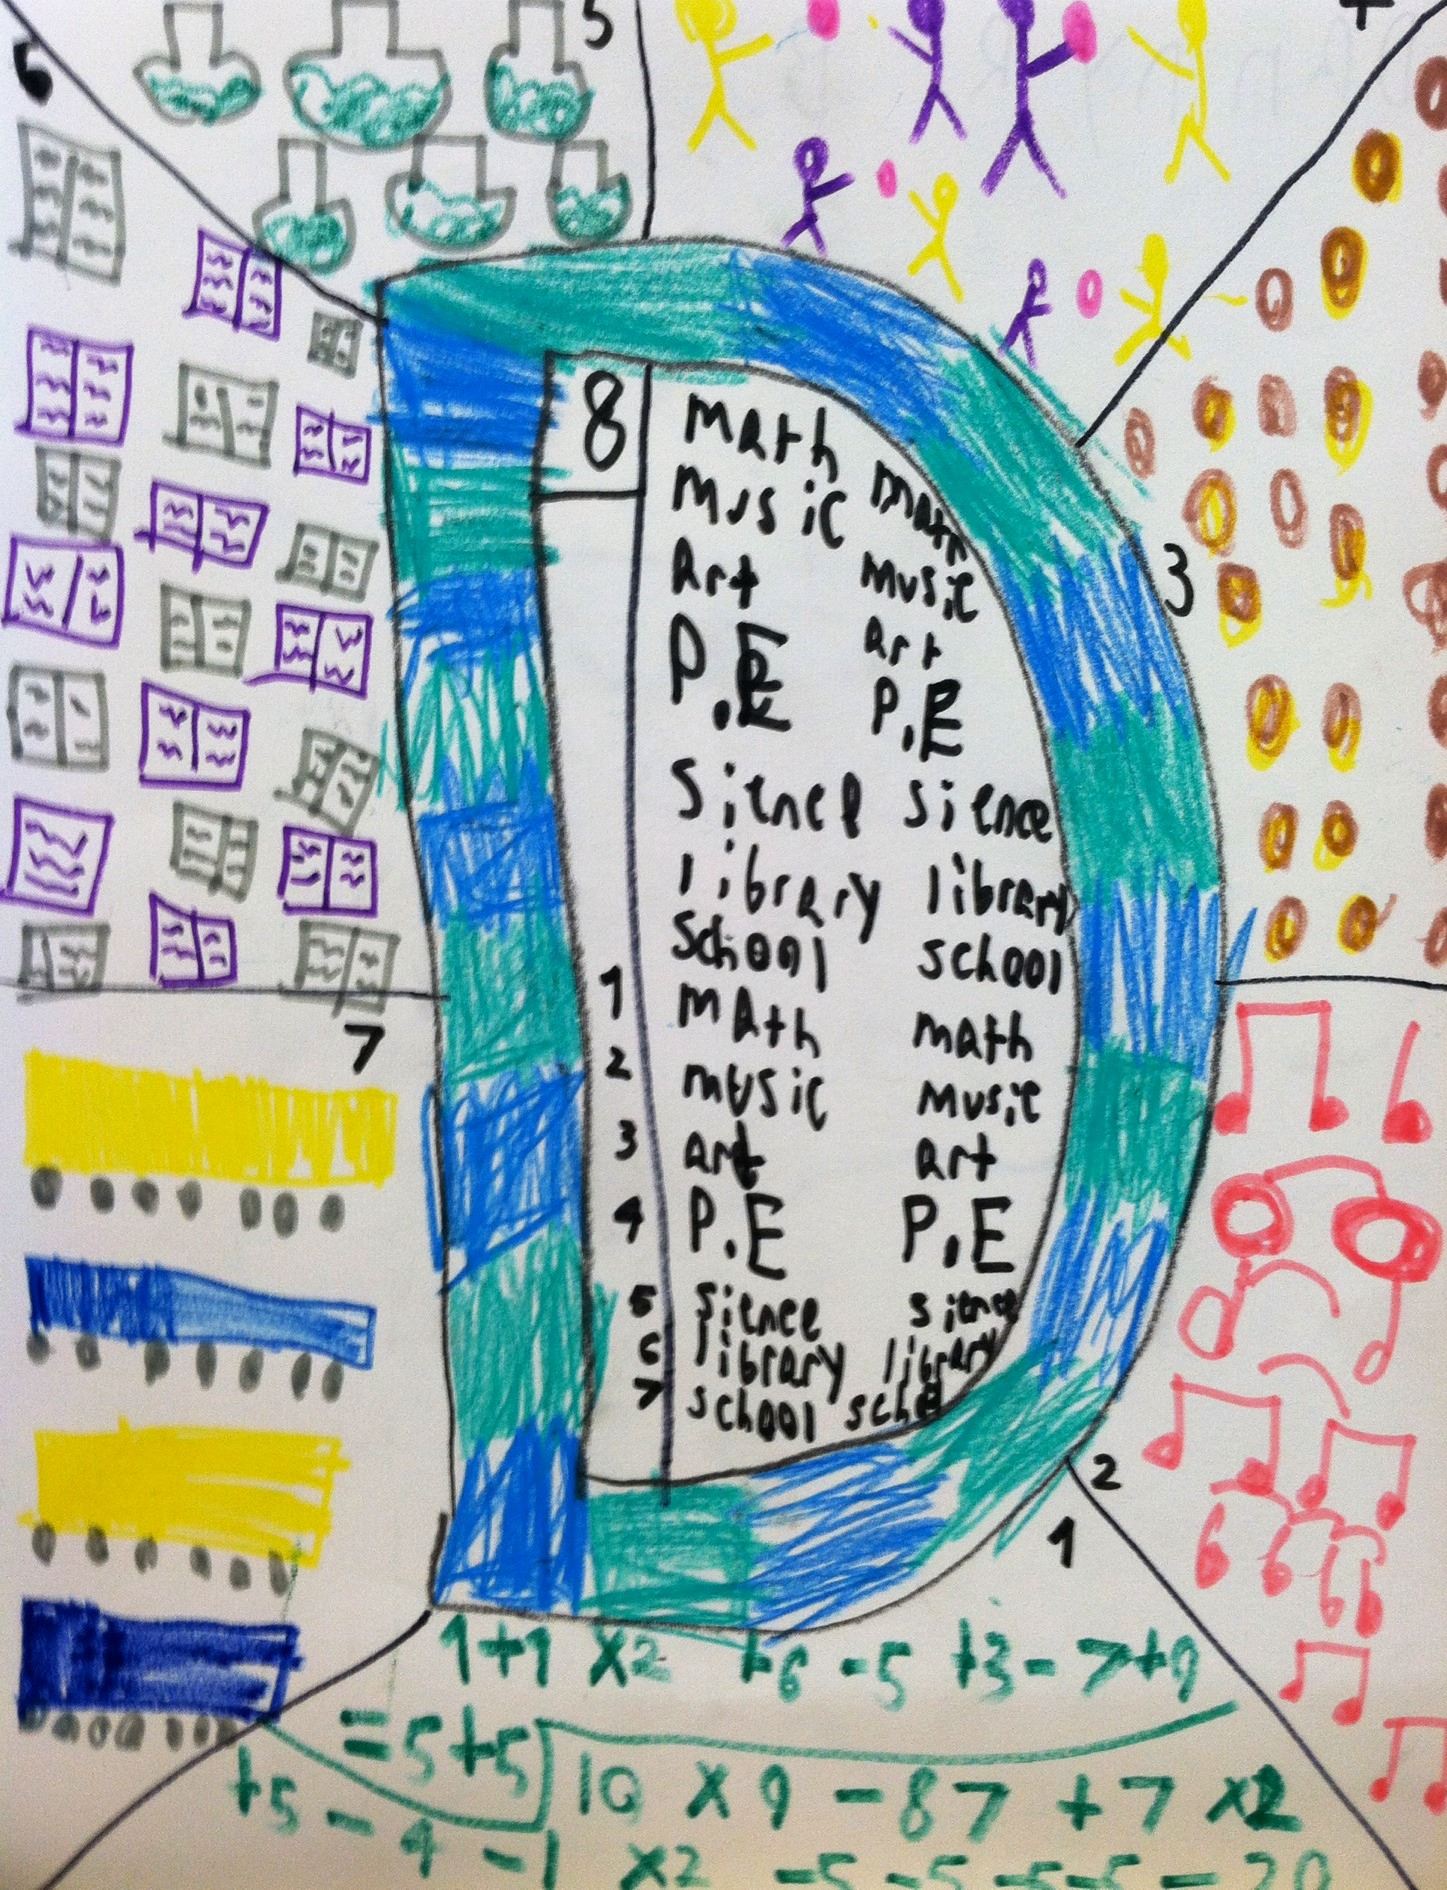 6
5
4
8
math
music math
Art music
P.E Art
P.E
Sience Sience
library library
School school
3
1 math math
2 music music
3 art art
4 P.E P.E
5 Sience Sience
6 library library
7 school school
7
2
1
1+1 x2 +6 -5 +3 - 7+9
= 5+5 10 x 9 - 87 + 7 x2
+5 - 4 - 1 x2 -5 -5 -5 -5 - 20